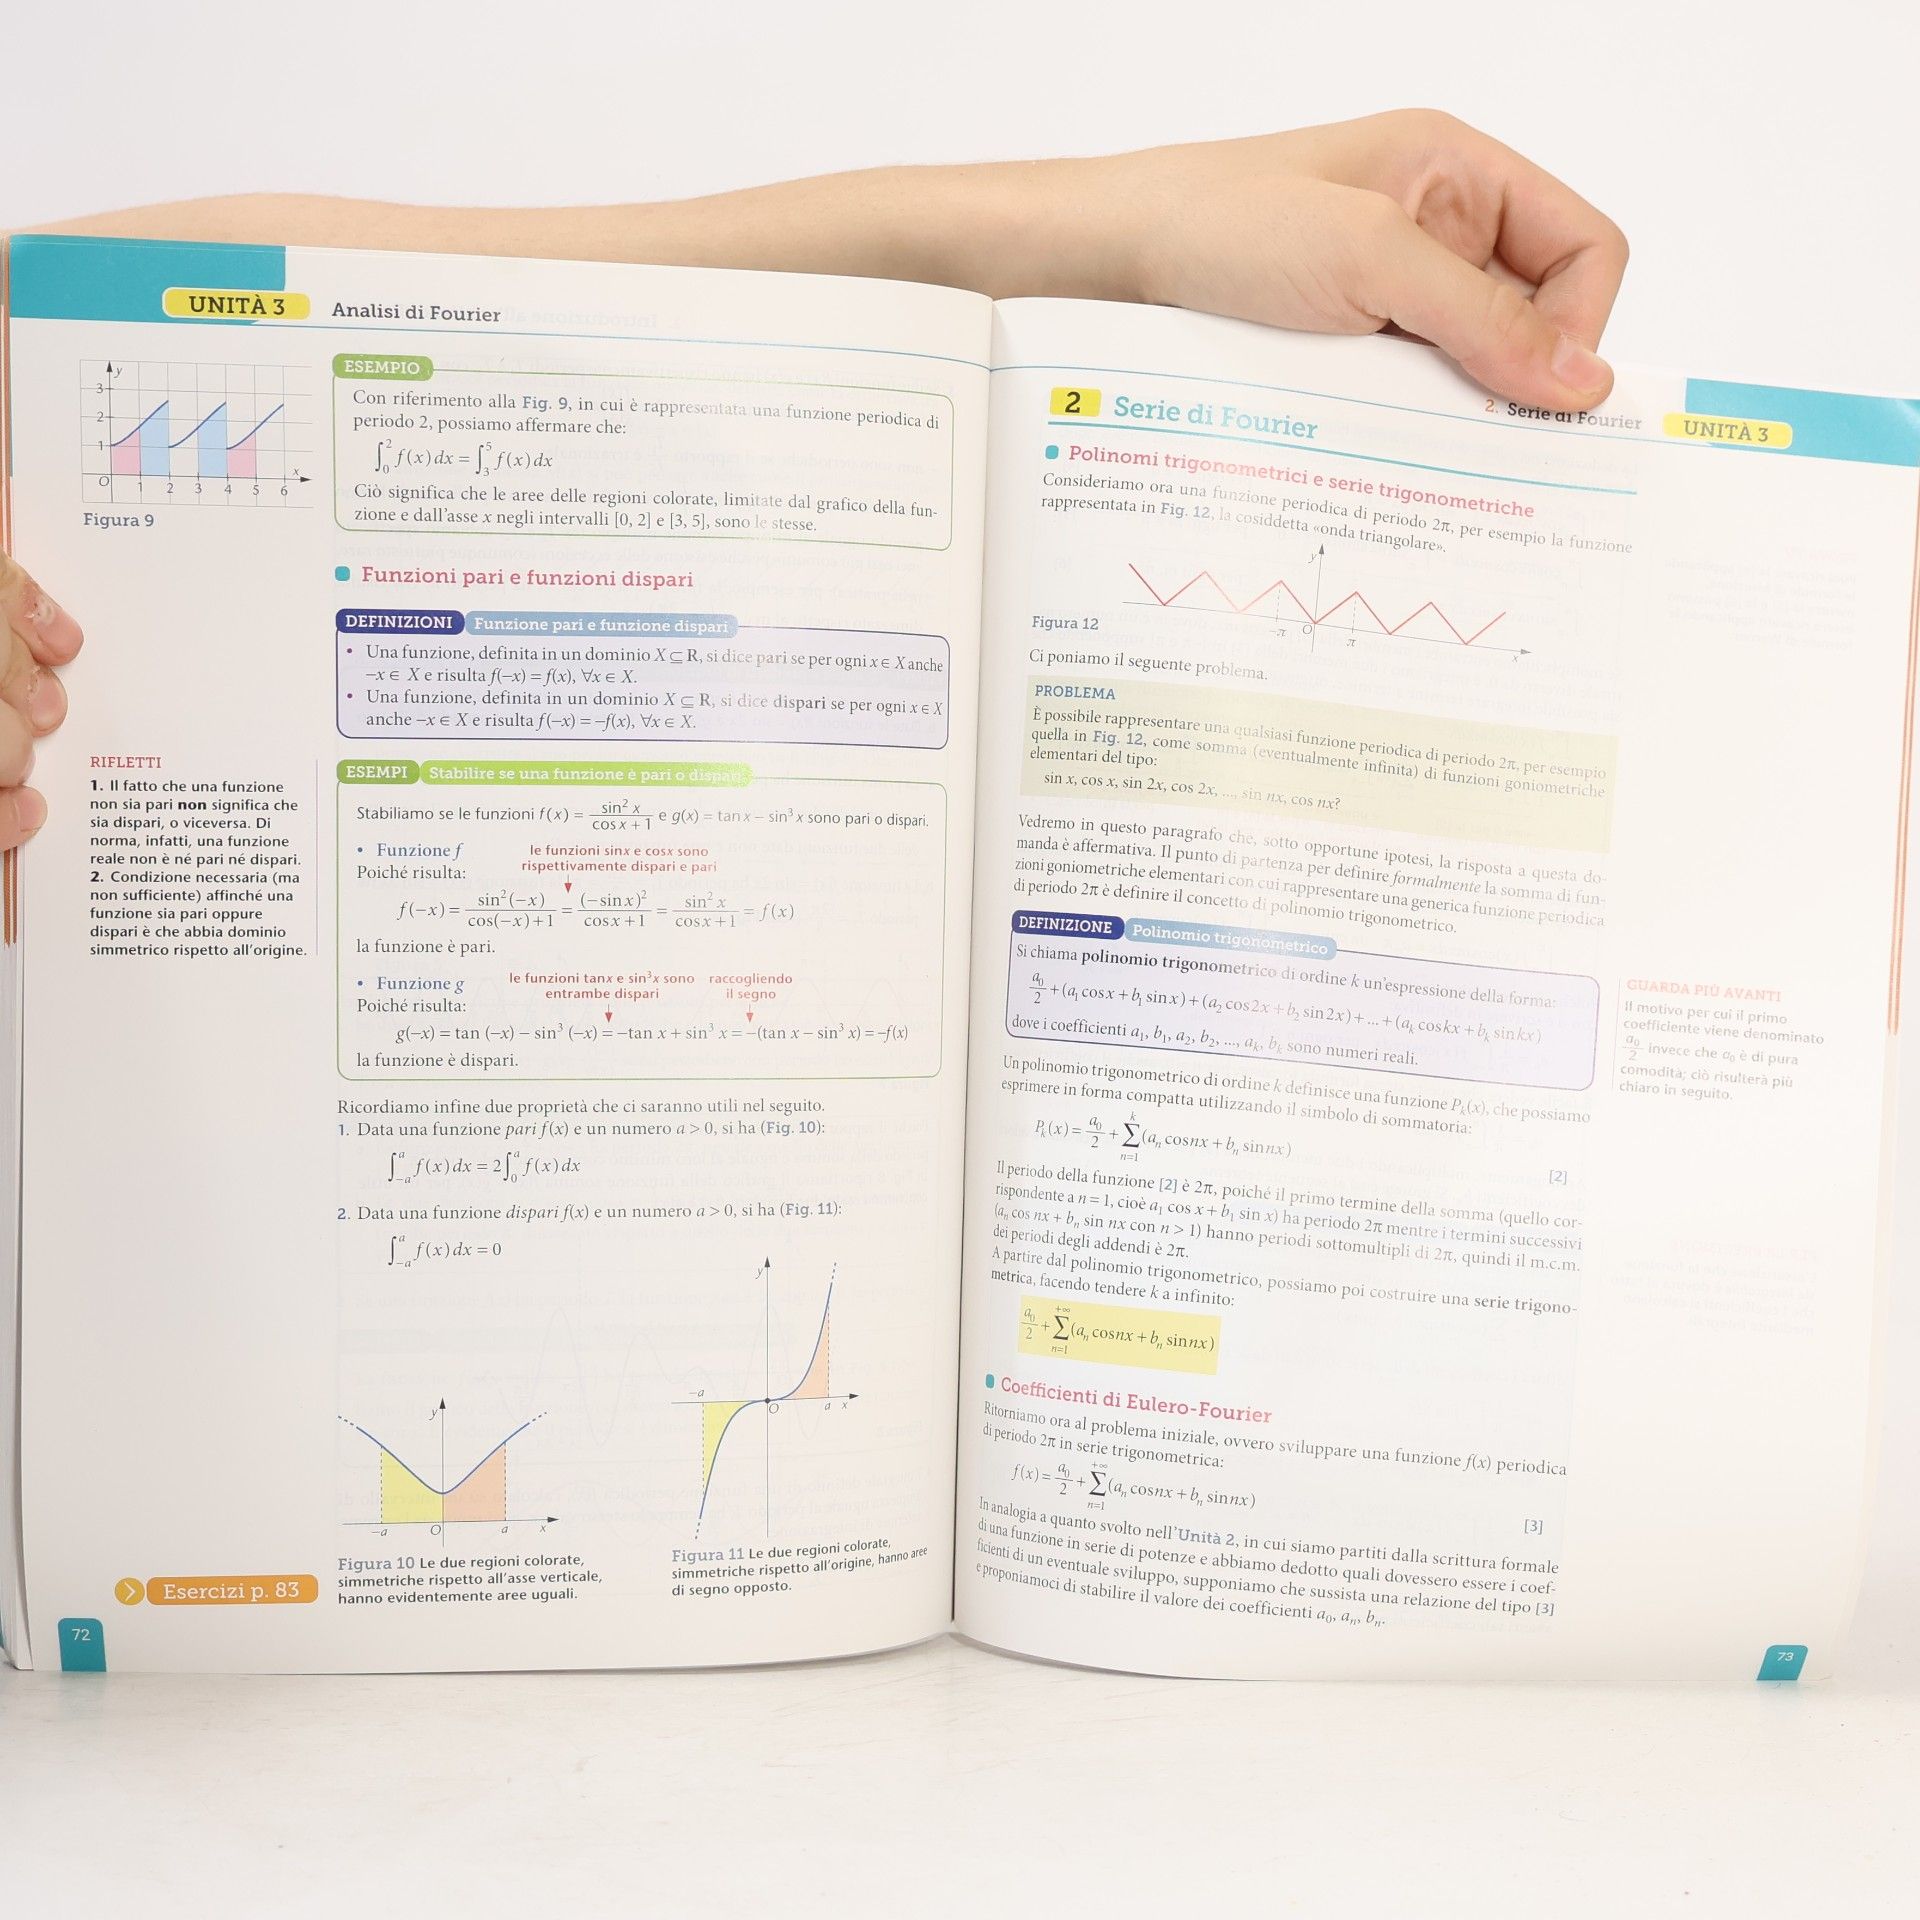 UNITÀ 3
Analisi di Fourier
y
3
2
1
O
1 2 3 4 5 6
x
Figura 9
ESEMPIO
Con riferimento alla Fig. 9, in cui è rappresentata una funzione periodica di
periodo 2, possiamo affermare che:
∫₀² f(x)dx = ∫₃⁵ f(x)dx
Ciò significa che le aree delle regioni colorate, limitate dal grafico della fun-
zione e dall'asse x negli intervalli [0, 2] e [3, 5], sono le stesse.
Funzioni pari e funzioni dispari
DEFINIZIONI Funzione pari e funzione dispari
• Una funzione, definita in un dominio X ⊆ R, si dice pari se per ogni x ∈ X anche
−x ∈ X e risulta f(−x) = f(x), ∀x ∈ X.
• Una funzione, definita in un dominio X ⊆ R, si dice dispari se per ogni x ∈ X
anche −x ∈ X e risulta f(−x) = −f(x), ∀x ∈ X.
RIFLETTI
1. Il fatto che una funzione
non sia pari non significa che
sia dispari, o viceversa. Di
norma, infatti, una funzione
reale non è né pari né dispari.
2. Condizione necessaria (ma
non sufficiente) affinché una
funzione sia pari oppure
dispari è che abbia dominio
simmetrico rispetto all'origine.
ESEMPI Stabilire se una funzione è pari o dispari
Stabiliamo se le funzioni f(x) = sin² x / (cos x + 1) e g(x) = tan x − sin³ x sono pari o dispari.
• Funzione f
le funzioni sinx e cosx sono
rispettivamente dispari e pari
Poiché risulta:
f(−x) = sin²(−x) / (cos(−x)+1) = (−sin x)² / (cos x + 1) = sin² x / (cos x + 1) = f(x)
la funzione è pari.
• Funzione g
le funzioni tanx e sin³x sono
entrambe dispari
raccogliendo
il segno
Poiché risulta:
g(−x) = tan (−x) − sin³ (−x) = −tan x + sin³ x = −(tan x − sin³ x) = −f(x)
la funzione è dispari.
Ricordiamo infine due proprietà che ci saranno utili nel seguito.
1. Data una funzione pari f(x) e un numero a > 0, si ha (Fig. 10):
∫₋ₐᵃ f(x)dx = 2∫₀ᵃ f(x)dx
2. Data una funzione dispari f(x) e un numero a > 0, si ha (Fig. 11):
∫₋ₐᵃ f(x)dx = 0
y
−a O a x
Figura 10 Le due regioni colorate,
simmetriche rispetto all'asse verticale,
hanno evidentemente aree uguali.
y
−a O a x
Figura 11 Le due regioni colorate,
simmetriche rispetto all'origine, hanno aree
di segno opposto.
Esercizi p. 83
72
2. Serie di Fourier
UNITÀ 3
2 Serie di Fourier
Polinomi trigonometrici e serie trigonometriche
Consideriamo ora una funzione periodica di periodo 2π, per esempio la funzione
rappresentata in Fig. 12, la cosiddetta «onda triangolare».
y
−π O π x
Figura 12
Ci poniamo il seguente problema.
PROBLEMA
È possibile rappresentare una qualsiasi funzione periodica di periodo 2π, per esempio
quella in Fig. 12, come somma (eventualmente infinita) di funzioni goniometriche
elementari del tipo:
sin x, cos x, sin 2x, cos 2x, ..., sin nx, cos nx?
Vedremo in questo paragrafo che, sotto opportune ipotesi, la risposta a questa do-
manda è affermativa. Il punto di partenza per definire formalmente la somma di fun-
zioni goniometriche elementari con cui rappresentare una generica funzione periodica
di periodo 2π è definire il concetto di polinomio trigonometrico.
DEFINIZIONE Polinomio trigonometrico
Si chiama polinomio trigonometrico di ordine k un'espressione della forma:
a₀/2 + (a₁ cos x + b₁ sin x) + (a₂ cos 2x + b₂ sin 2x) + ... + (aₖ cos kx + bₖ sin kx)
dove i coefficienti a₁, b₁, a₂, b₂, ..., aₖ, bₖ sono numeri reali.
GUARDA PIÙ AVANTI
Il motivo per cui il primo
coefficiente viene denominato
a₀/2 invece che a₀ è di pura
comodità; ciò risulterà più
chiaro in seguito.
Un polinomio trigonometrico di ordine k definisce una funzione Pₖ(x), che possiamo
esprimere in forma compatta utilizzando il simbolo di sommatoria:
Pₖ(x) = a₀/2 + ∑ₙ₌₁ᵏ (aₙ cos nx + bₙ sin nx) [2]
Il periodo della funzione [2] è 2π, poiché il primo termine della somma (quello cor-
rispondente a n = 1, cioè a₁ cos x + b₁ sin x) ha periodo 2π mentre i termini successivi
(aₙ cos nx + bₙ sin nx con n > 1) hanno periodi sottomultipli di 2π, quindi il m.c.m.
dei periodi degli addendi è 2π.
A partire dal polinomio trigonometrico, possiamo poi costruire una serie trigono-
metrica, facendo tendere k a infinito:
a₀/2 + ∑ₙ₌₁⁺∞ (aₙ cos nx + bₙ sin nx)
Coefficienti di Eulero-Fourier
Ritorniamo ora al problema iniziale, ovvero sviluppare una funzione f(x) periodica
di periodo 2π in serie trigonometrica:
f(x) = a₀/2 + ∑ₙ₌₁⁺∞ (aₙ cos nx + bₙ sin nx) [3]
In analogia a quanto svolto nell'Unità 2, in cui siamo partiti dalla scrittura formale
di una funzione in serie di potenze e abbiamo dedotto quali dovessero essere i coef-
ficienti di un eventuale sviluppo, supponiamo che sussista una relazione del tipo [3]
e proponiamoci di stabilire il valore dei coefficienti a₀, aₙ, bₙ.
73